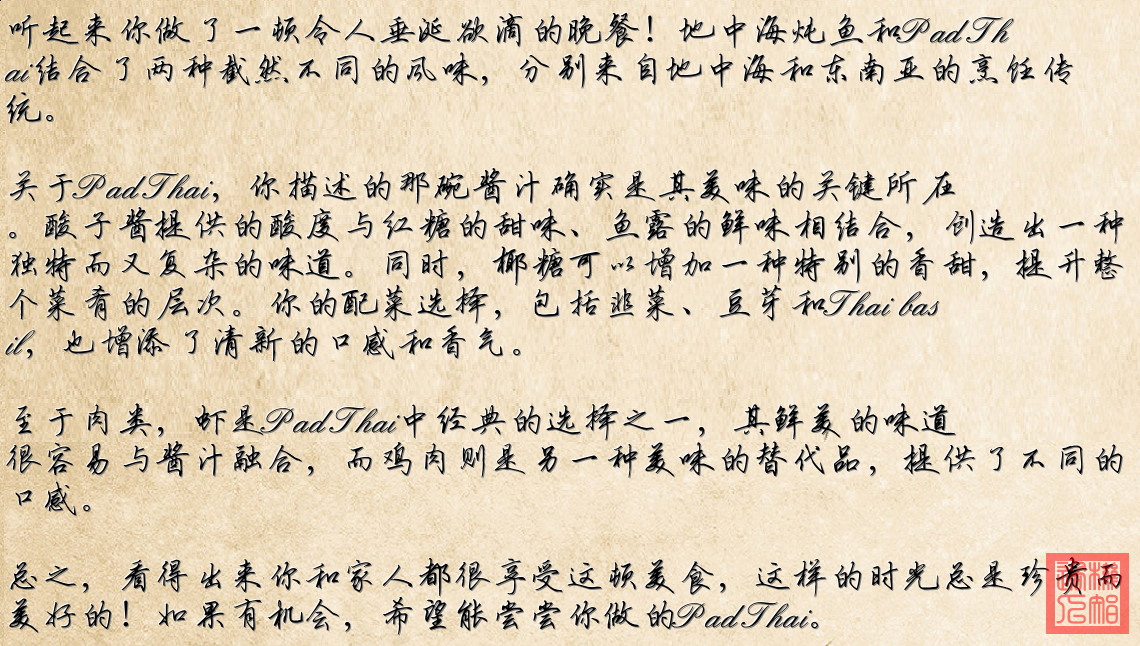 听起来你做了一顿令人垂涎欲滴的晚餐！地中海炖鱼和PadTh
ai结合了两种截然不同的风味，分别来自地中海和东南亚的烹饪传
统。
关于PadThai，你描述的那碗酱汁确实是其美味的关键所在
。酸子酱提供的酸度与红糖的甜味、鱼露的鲜味相结合，创造出一种
独特而又复杂的味道。同时，椰糖可以增加一种特别的香甜，提升整
个菜肴的层次。你的配菜选择，包括韭菜、豆芽和Thai bas
il，也增添了清新的口感和香气。
至于肉类，虾是PadThai中经典的选择之一，其鲜美的味道
很容易与酱汁融合，而鸡肉则是另一种美味的替代品，提供了不同的
口感。
总之，看得出来你和家人都很享受这顿美食，这样的时光总是珍贵而
美好的！如果有机会，希望能尝尝你做的PadThai。